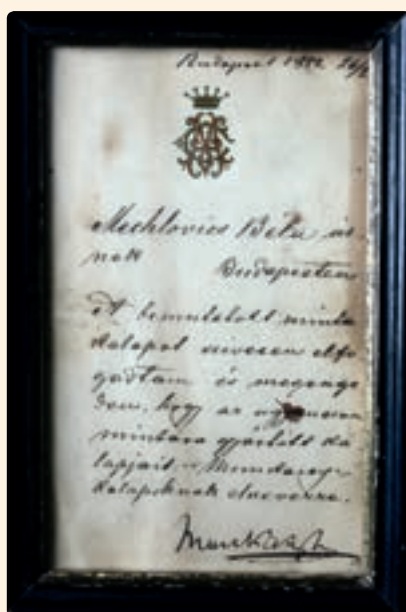 Budapest 1882
Mechlovics Béla úr-
nak
Budapesten
A bemutatott minta
kalapot szivesen elfo-
gadtam és megenge-
dem, hogy az ugyanezen
mintára gyártott ka
lapjait
kalapoknak elnevezze.